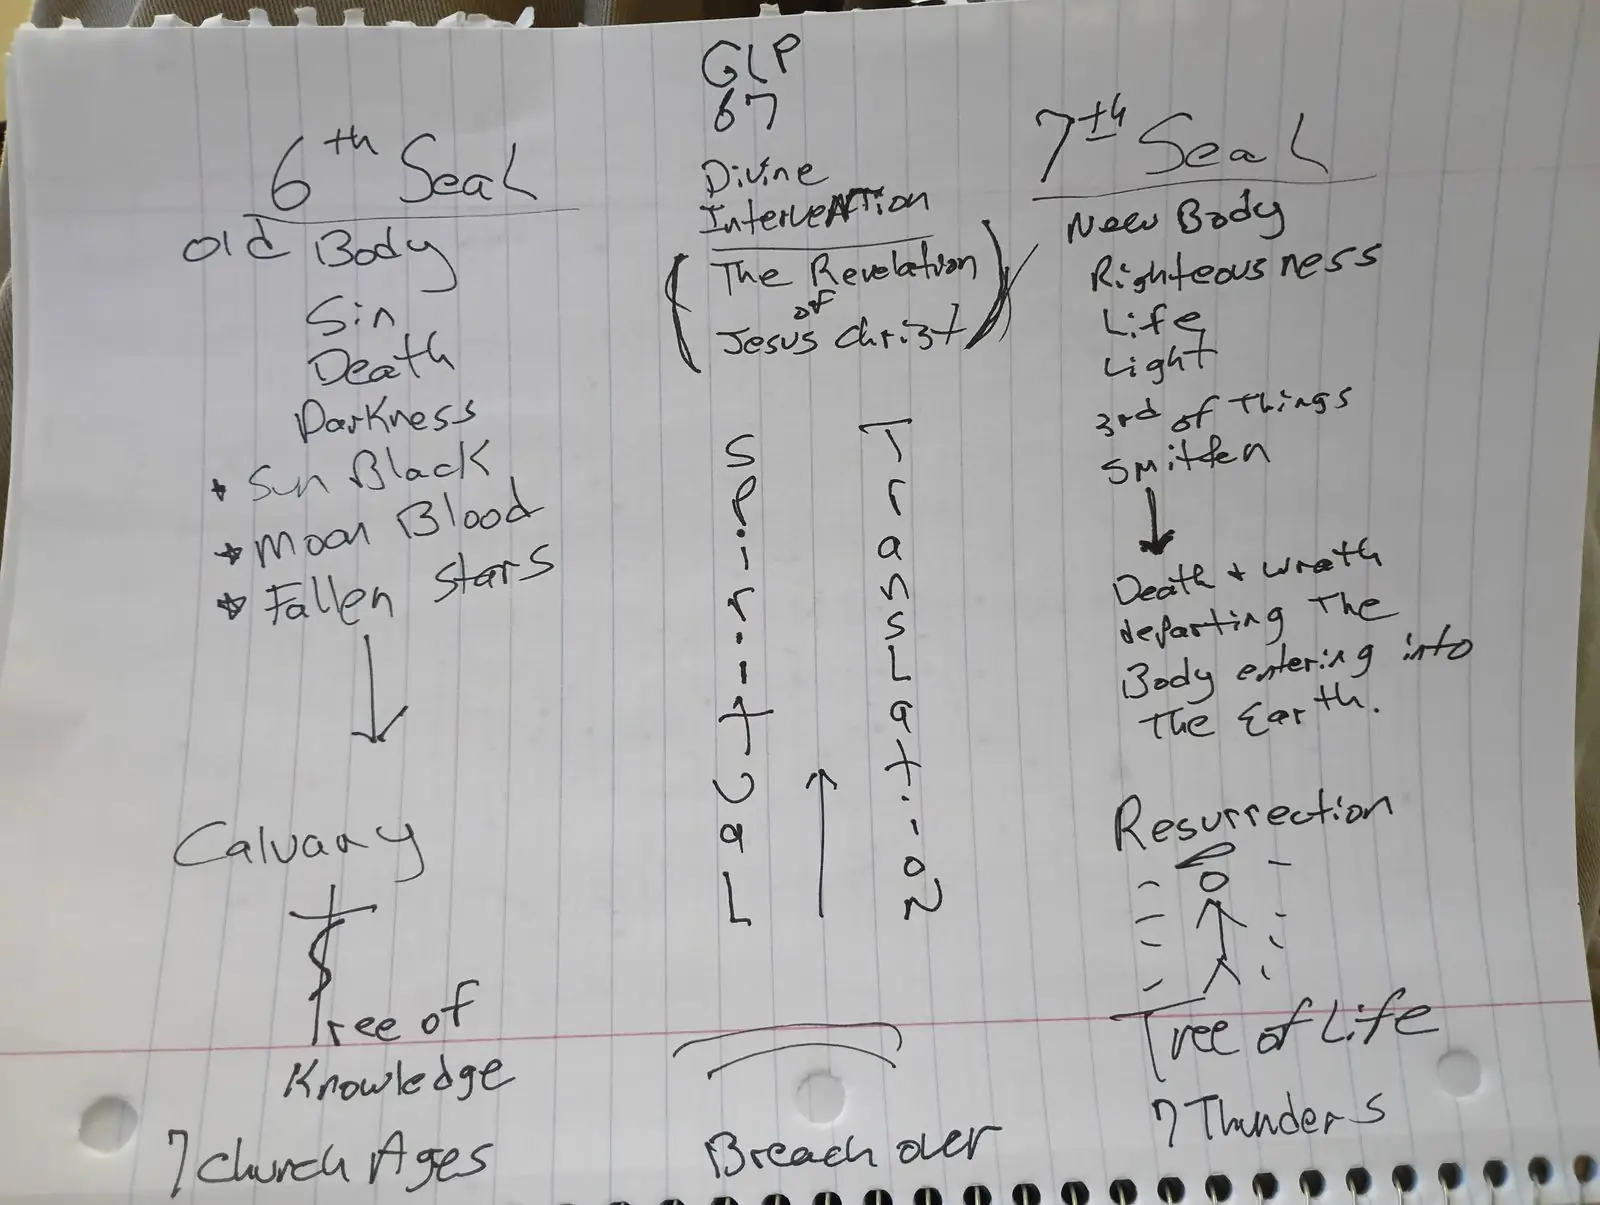 GLP
67
Divine
Intervention
(The Revelation
of
Jesus Christ)
6th Seal
Old Body
Sin
Death
Darkness
Sun Black
Moon Blood
Fallen Stars
Calvary
Tree of
Knowledge
7 Church Ages
Spiritual
Translation
Breach over
7th Seal
New Body
Righteousness
Life
Light
3rd of Things
Smitten
Death + wrath
departing The
Body entering into
The Earth.
Resurrection
Tree of Life
7 Thunders